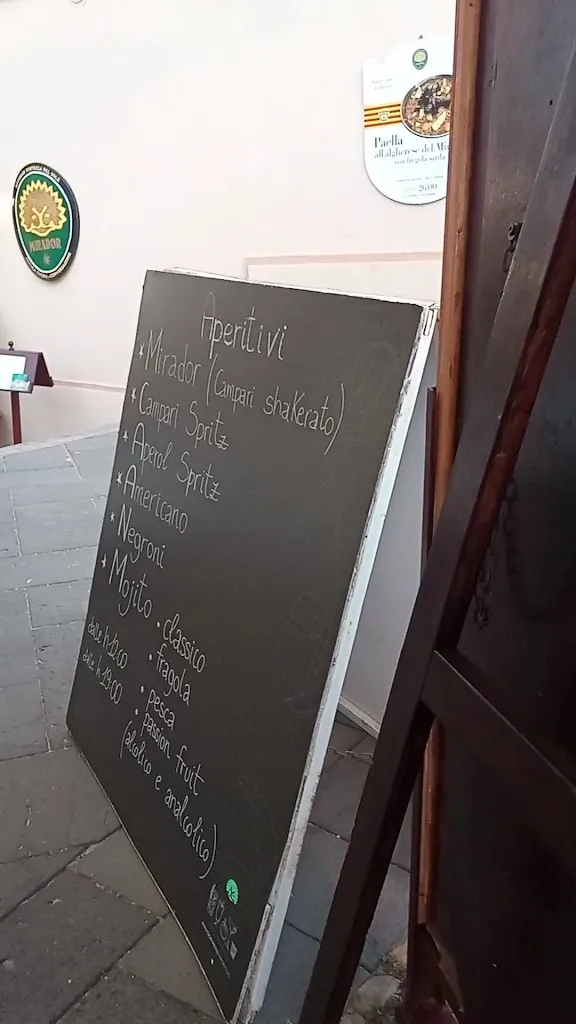 MIRADOR
Paella
all'algherese del Mi
con fregola sarda
26,00
Aperitivi
* Mirador (Campari shakerato)
* Campari Spritz
* Aperol Spritz
* Americano
* Negroni
* Mojito • classico
• fragola
• pesca
• passion fruit
(alcolico e analcolico)
dalle h 12:00
dalle h 19:00